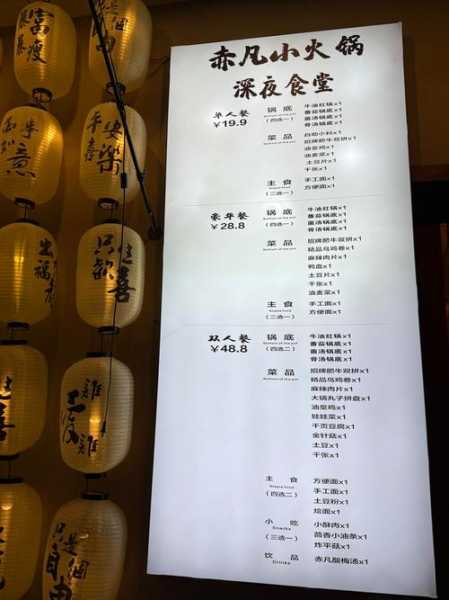 赤凡小火锅
深夜食堂
单人餐
¥19.9
锅底
(四选一)
牛油红锅x1
番茄锅底x1
菌汤锅底x1
骨汤锅底x1
菜品
自助小料x1
招牌肥牛双拼x1
油皇鸡x1
油麦菜x1
土豆片x1
千张x1
主食
(二选一)
手工面x1
方便面x1
豪华餐
¥28.8
锅底
(四选一)
牛油红锅x1
番茄锅底x1
菌汤锅底x1
骨汤锅底x1
菜品
招牌肥牛双拼x1
精品乌鸡卷x1
麻辣肉片x1
鸭血x1
土豆片x1
千张x1
油麦菜x1
主食
(二选一)
手工面x1
方便面x1
双人餐
¥48.8
锅底
(四选二)
牛油红锅x1
番茄锅底x1
菌汤锅底x1
骨汤锅底x1
菜品
招牌肥牛双拼x1
精品乌鸡卷x1
麻辣肉片x1
大锅丸子拼盘x1
油皇鸡x1
娃娃菜x1
千页豆腐x1
金针菇x1
土豆x1
千张x1
主食
(四选二)
方便面x1
手工面x1
土豆粉x1
烩面x1
小吃
Snacks
(三选一)
小酥肉x1
茴香小油条x1
炸平菇x1
饮品
Drinks
赤凡酸梅汤x1
富瘦
只是
平安
喜乐
意
只欢
喜
出福
喜
只是個
自由